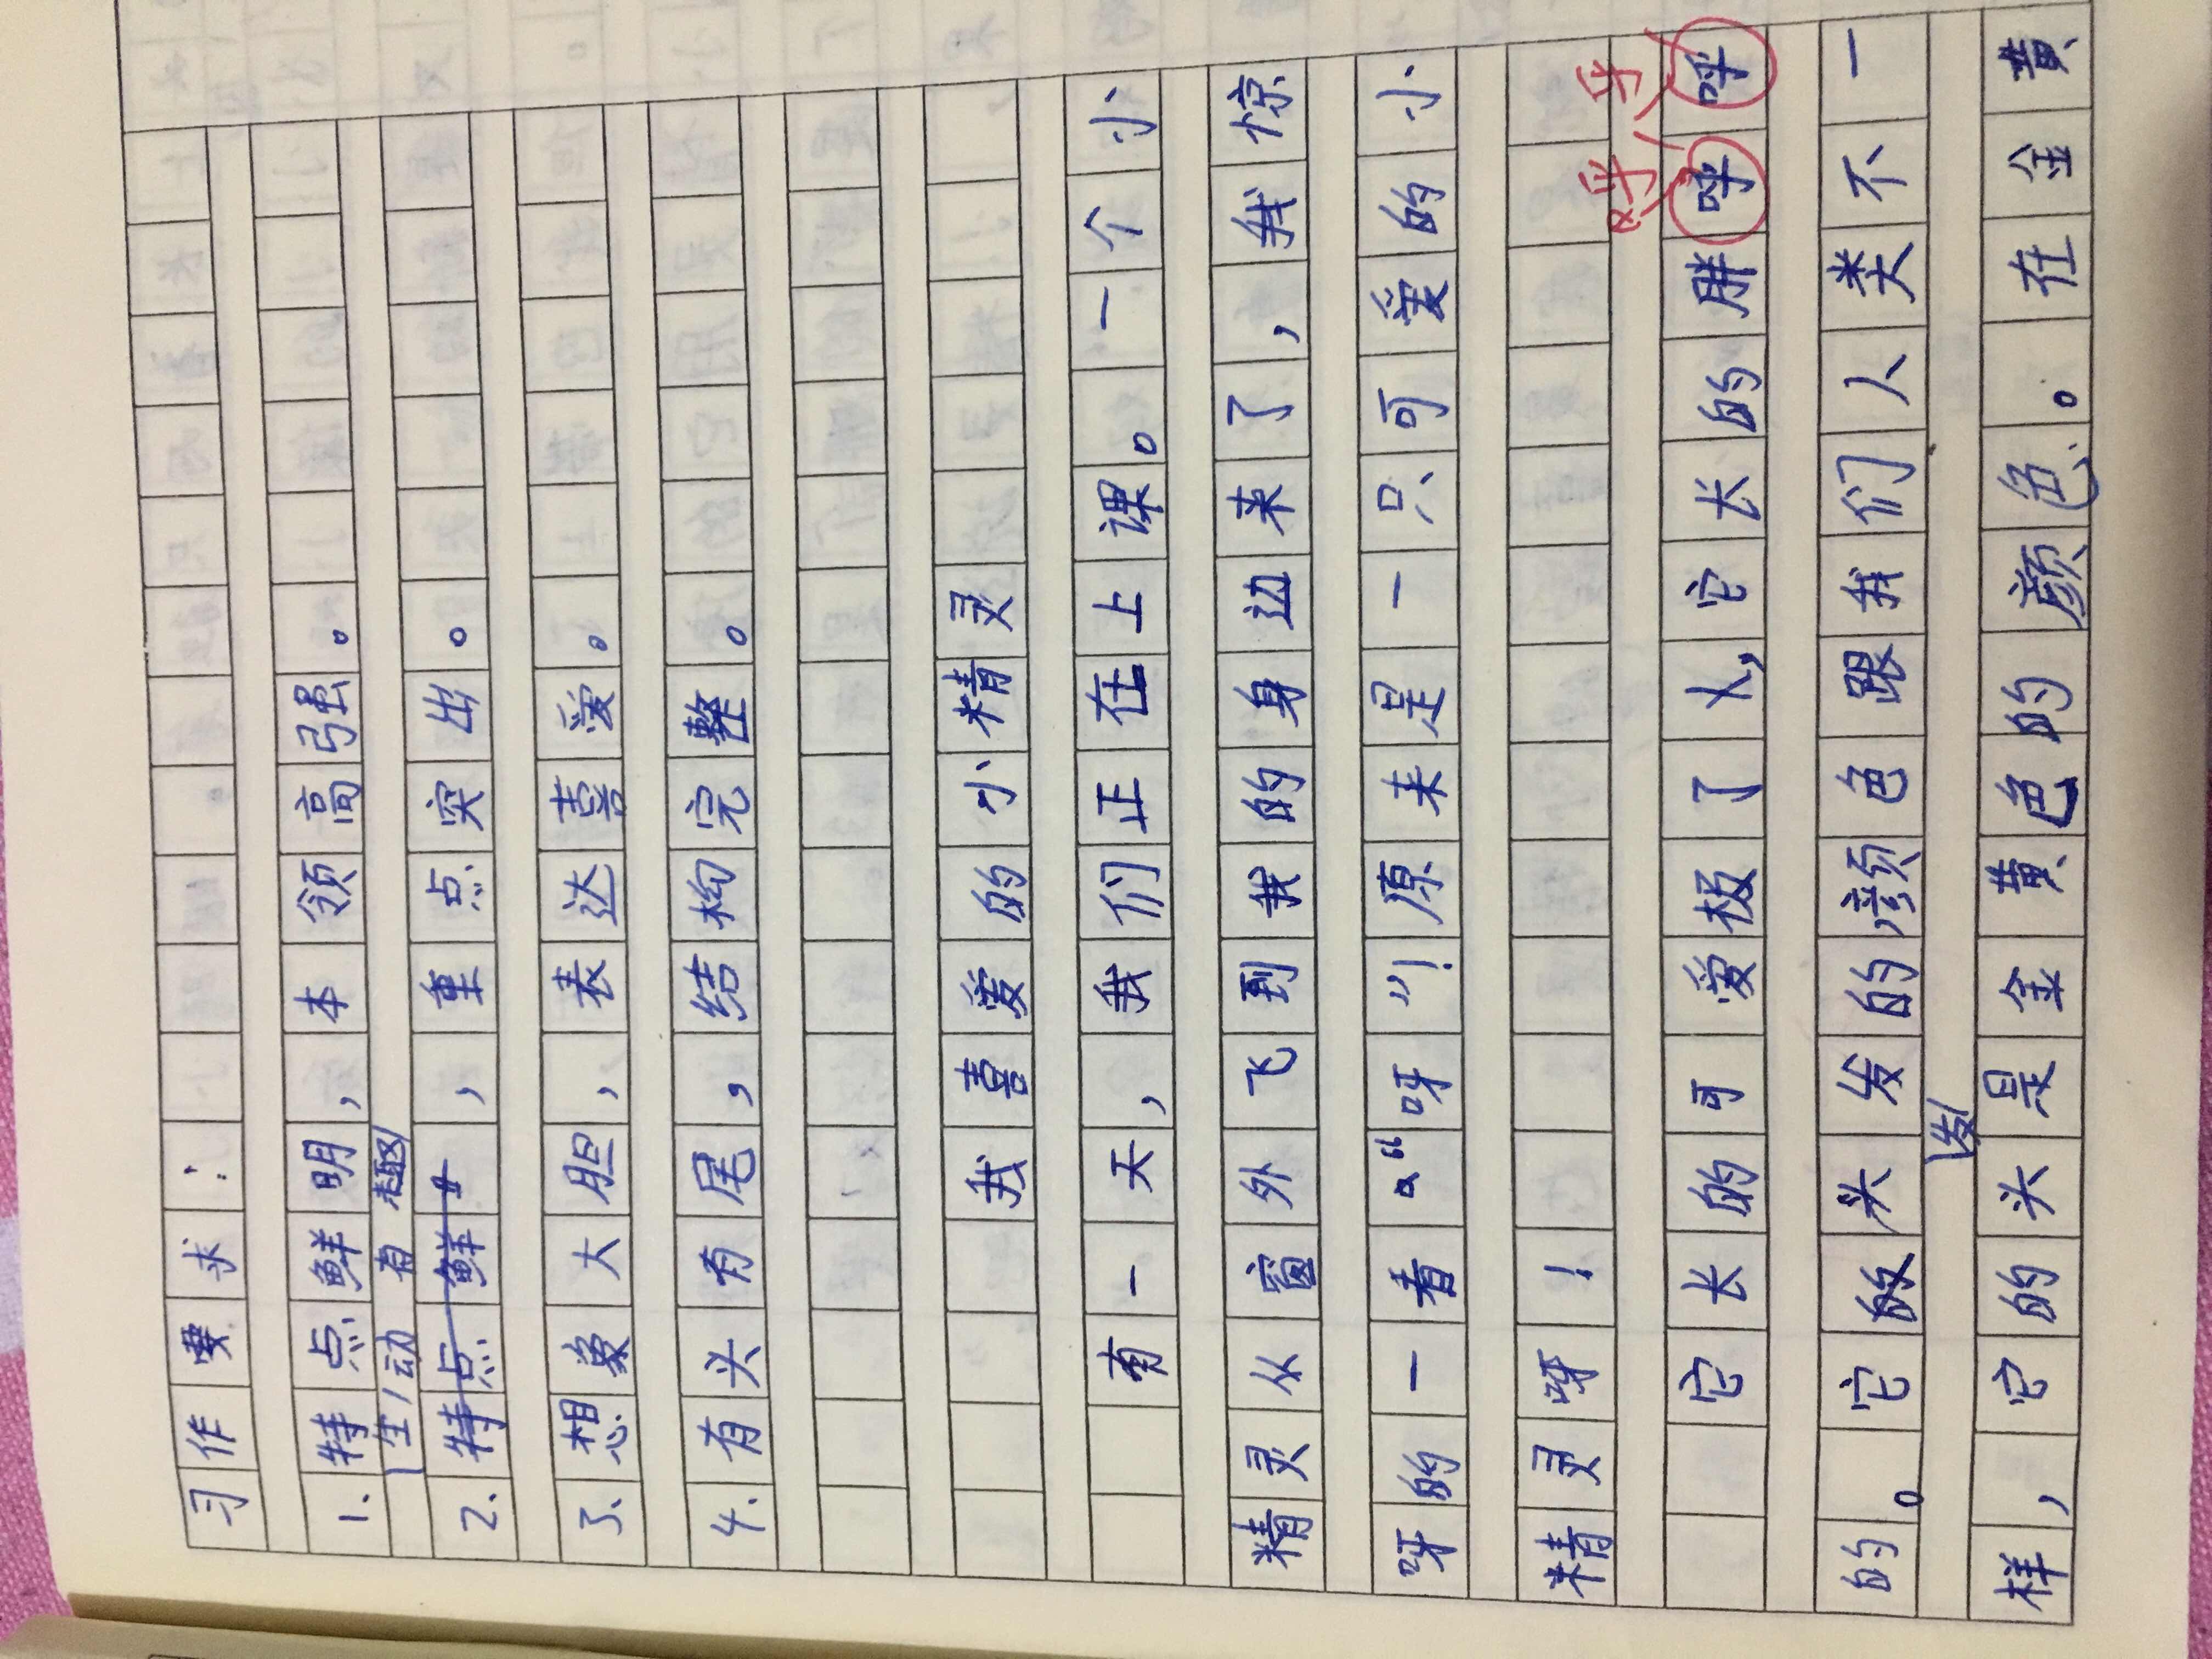 习作要求：
1、特点鲜明，本领高强。
生动有趣
2、特点鲜，重点突出。
3、想象大胆，表达喜爱。
4、有头有尾，结构完整。
我喜爱的小精灵
有一天，我们正在上课。一个小
精灵从窗外飞到我的身边来了，我惊
呀的一看。“呀”！原来是一只可爱的小
精灵呀！
呼乎
它长的可爱极了，它长的胖呼呼
的。它的头发的颜色跟我们人类不一
发
样，它的头是金黄色的颜色。在金黄